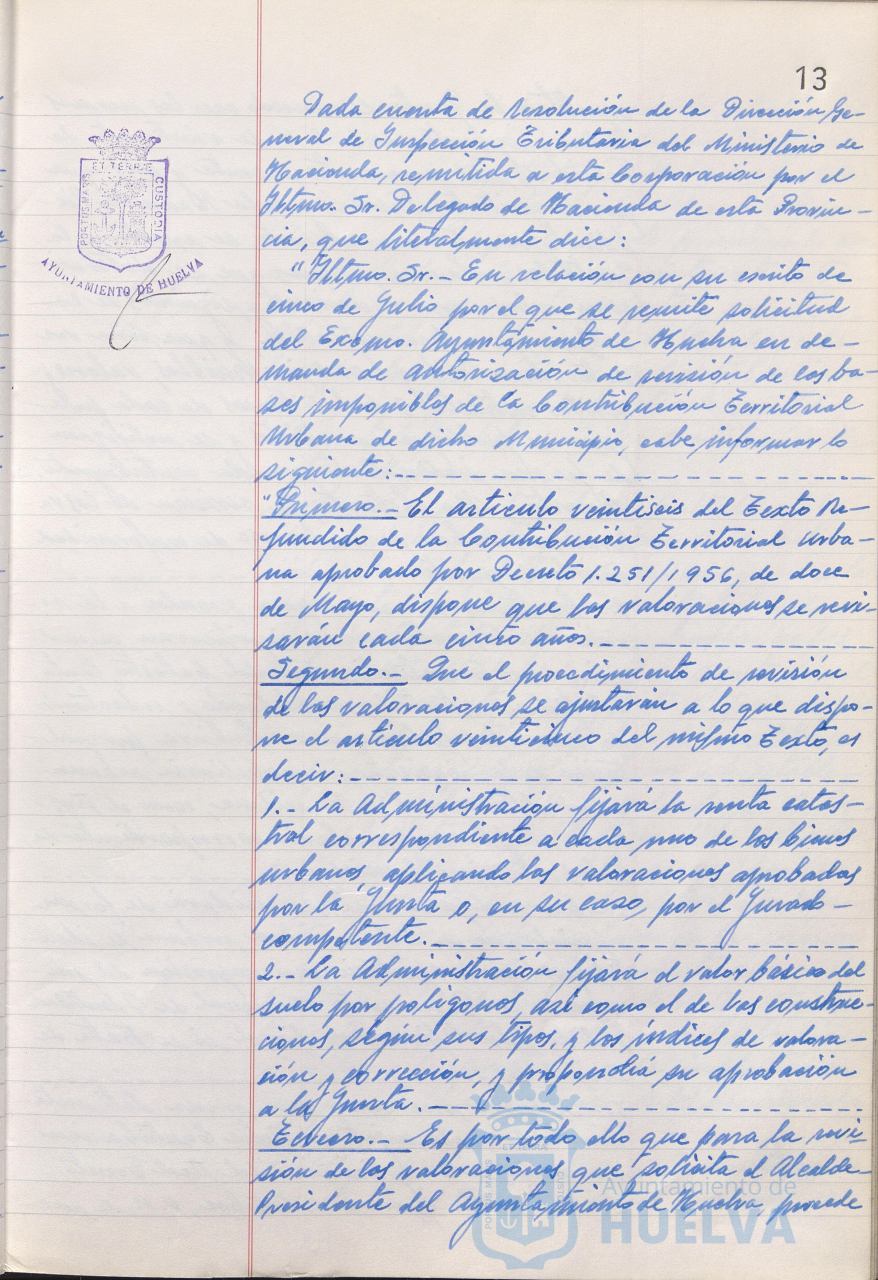 13
Dada cuenta de resolución de la Dirección Ge-
neral de Inspección Tributaria del Ministerio de
Hacienda, remitida a esta Corporación por el
Iltmo. Sr. Delegado de Hacienda de esta Provin-
cia, que literalmente dice:
"Iltmo. Sr.- En relación con su escrito de
cinco de Julio por el que se remite solicitud
del Excmo. Ayuntamiento de Huelva en de-
manda de autorización de revisión de las ba-
ses imponibles de la Contribución Territorial
Urbana de dicho Municipio, cabe informar lo
siguiente:
"Primero.- El artículo veintiseis del Texto Re-
fundido de la Contribución Territorial Urba-
na aprobado por Decreto 1.251/1956, de doce
de Mayo, dispone que las valoraciones se revi-
sarán cada cinco años.
Segundo.- Que el procedimiento de revisión
de las valoraciones se ajustarán a lo que dispo-
ne el artículo veinticinco del mismo Texto, es
decir:
1.- La Administración fijará la renta catas-
tral correspondiente a cada uno de los bienes
urbanos, aplicando las valoraciones aprobadas
por la Junta o, en su caso, por el Jurado
competente.
2.- La Administración fijará el valor básico del
suelo por polígonos, así como el de las construc-
ciones, según sus tipos, y los índices de valora-
ción y corrección, y propondrá su aprobación
a la Junta.
Tercero.- Es por todo ello que para la revi
sión de las valoraciones que solicita el Alcalde-
Presidente del Ayuntamiento de Huelva, procede
PORTUS MARIS
ET TERRÆ
CUSTODIA
AYUNTAMIENTO DE HUELVA
Ayuntamiento de
HUELVA